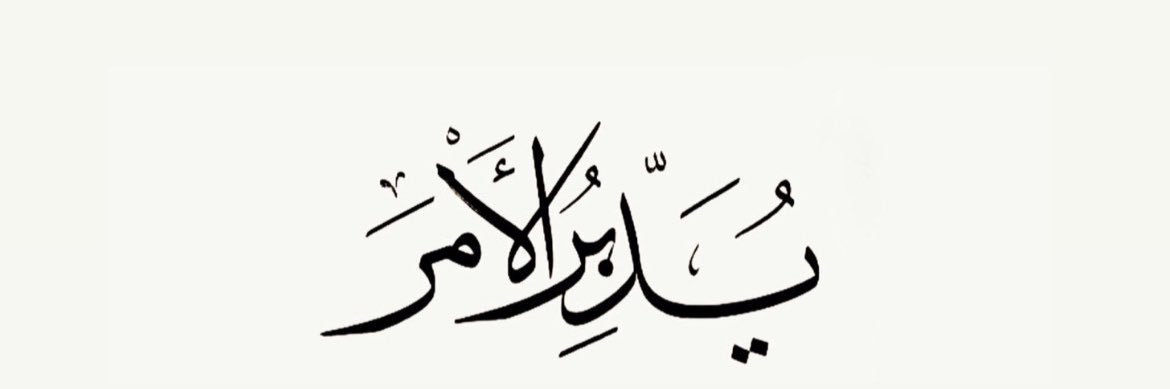 يُدَبِّرُ الْأَمْرَ